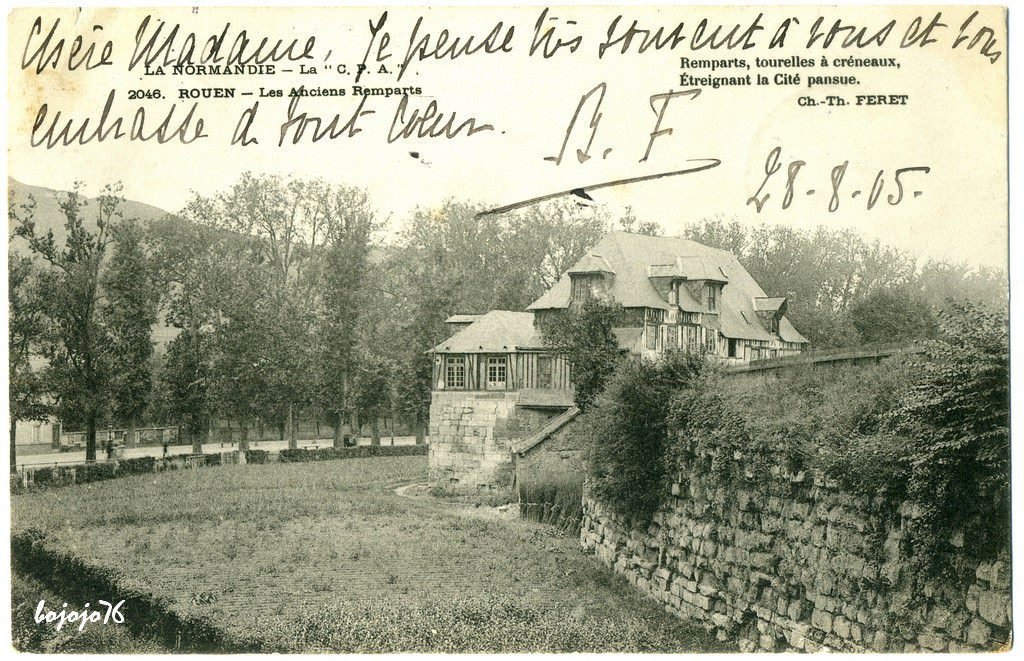 Chère Madame, Je pense très souvent à vous et vous
LA NORMANDIE – La "C. P. A."
2046. ROUEN – Les Anciens Remparts
Remparts, tourelles à créneaux,
Étreignant la Cité pansue.
Ch.-Th. FERET
embrasse de tout cœur.
F
28-8-05.
bojojo76